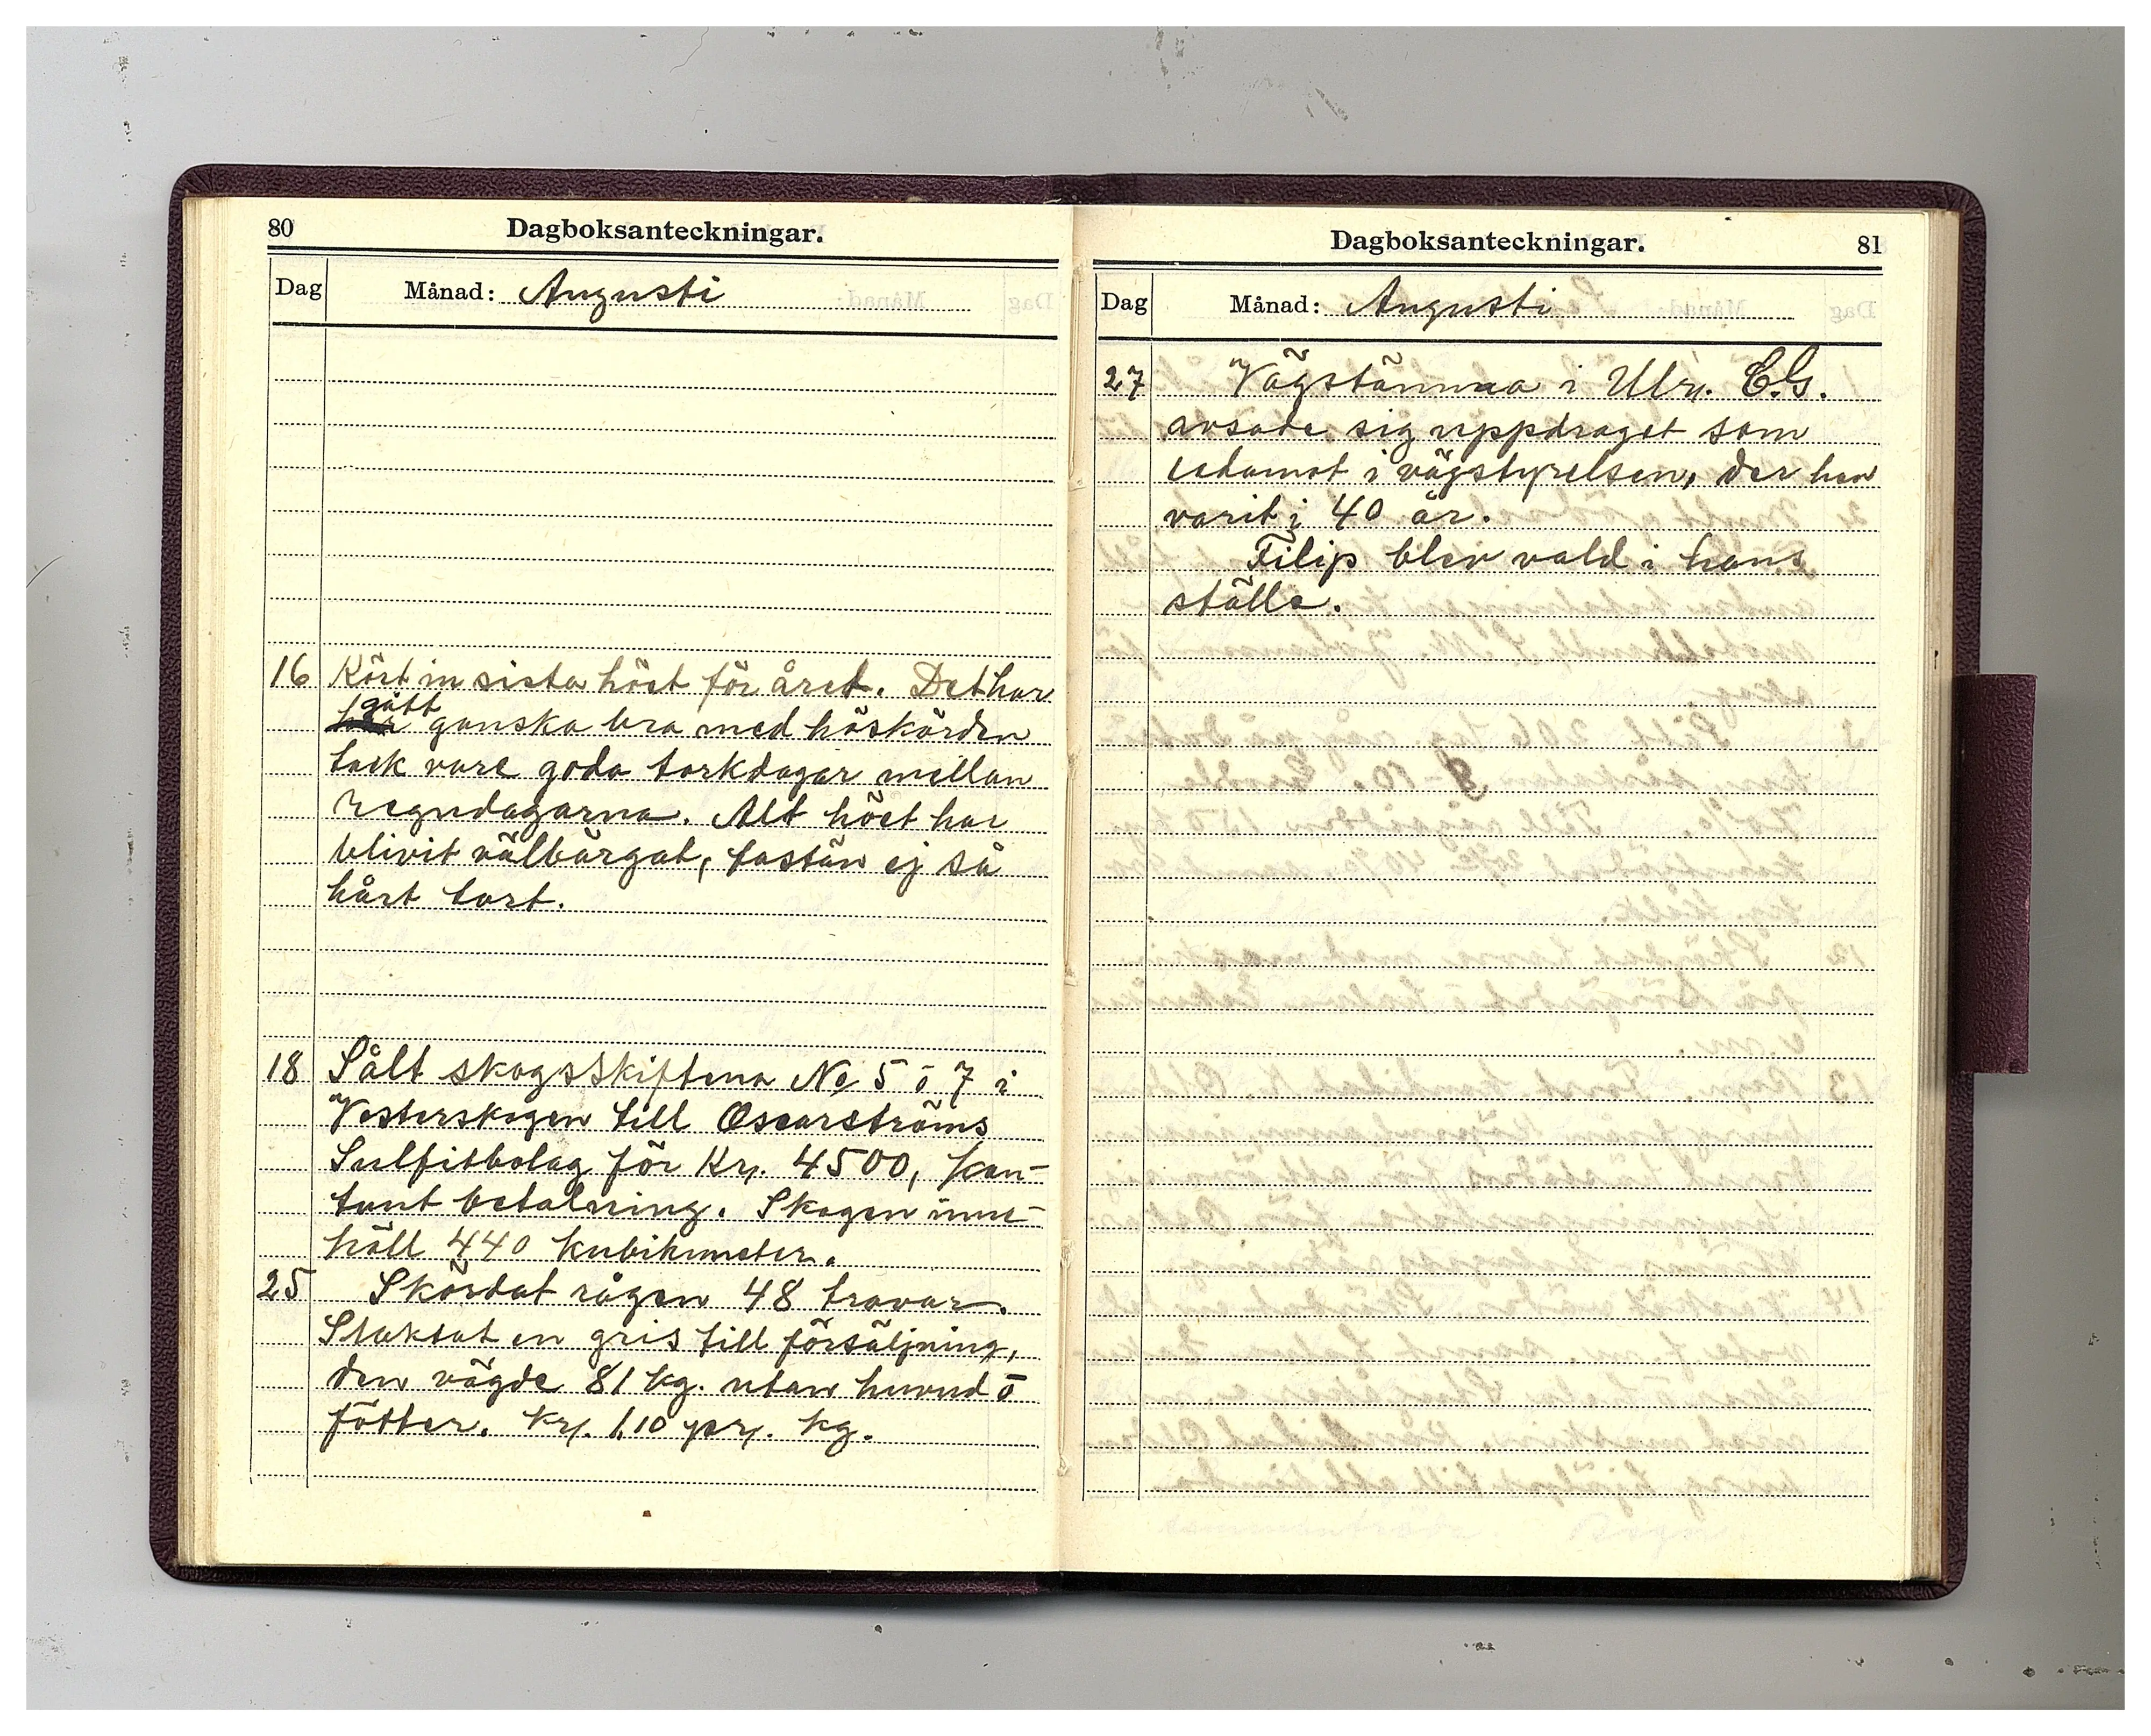 80
Dagboksanteckningar.
Dag Månad: Augusti
16 Kört in sista höet för året. Det har
gått
ganska bra med höskörden
tack vare goda torkdagar mellan
regndagarna. Alt höet har
blivit välbärgat, fastän ej så
hårt tort.
18 Sålt skogsskiftena No 5 o 7 i
Vesterskogen till Oscarströms
Sulfitbolag för Kr. 4500, kon-
tant betalning. Skogen inne-
höll 440 kubikmeter.
25 Skördat rågen 48 travar.
Slaktat en gris till försäljning,
den vägde 81 kg. utan huvud o
fötter. Kr. 1,10 pr. kg.
Dagboksanteckningar.
81
Dag Månad: Augusti
27 Vägstämma i Ulr. C.G.
avsade sig uppdraget som
ledamot i vägstyrelsen, der han
varit i 40 år.
Filip blev vald i hans
ställe.